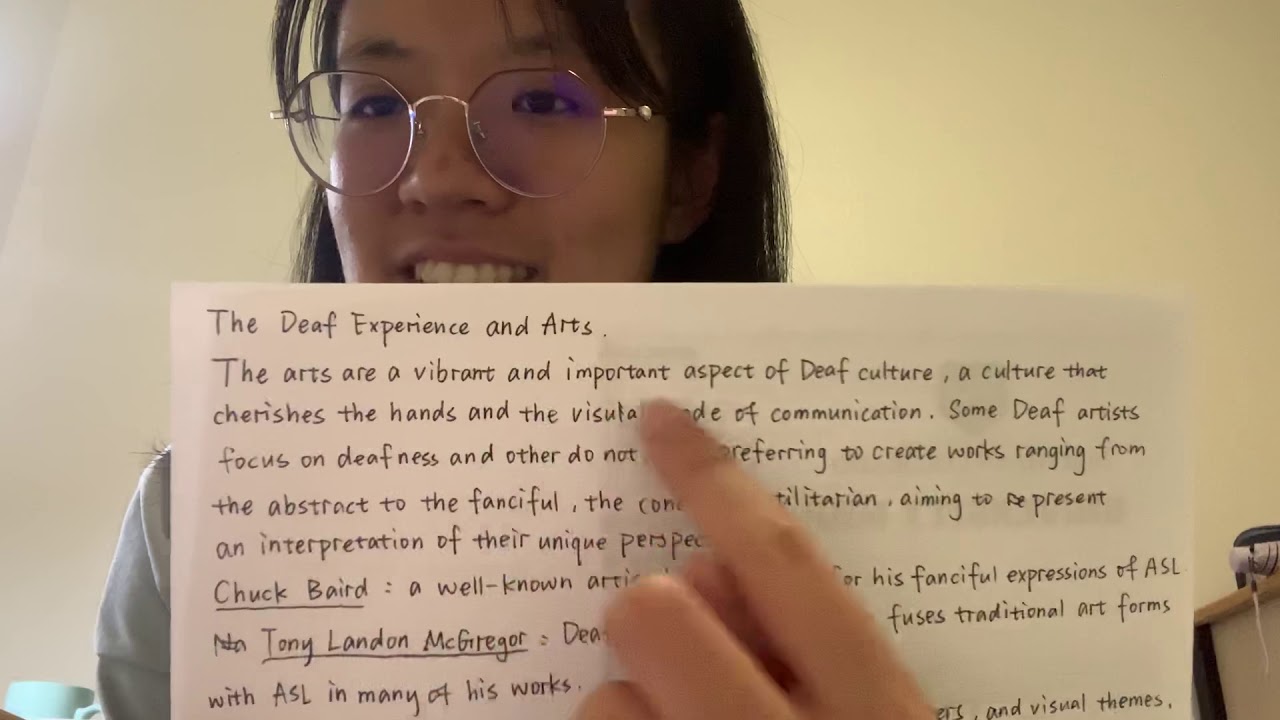 The Deaf Experience and Arts.
The arts are a vibrant and important aspect of Deaf culture, a culture that
cherishes the hands and the of communication. Some Deaf artists
focus on deafness and other do not to create works ranging from
the abstract to the fanciful, the aiming to present
an interpretation of their unique
Chuck Baird : a well-known his fanciful expressions of ASL
Tony Landon McGregor : fuses traditional art forms
with ASL in many of his works.
, and visual themes.